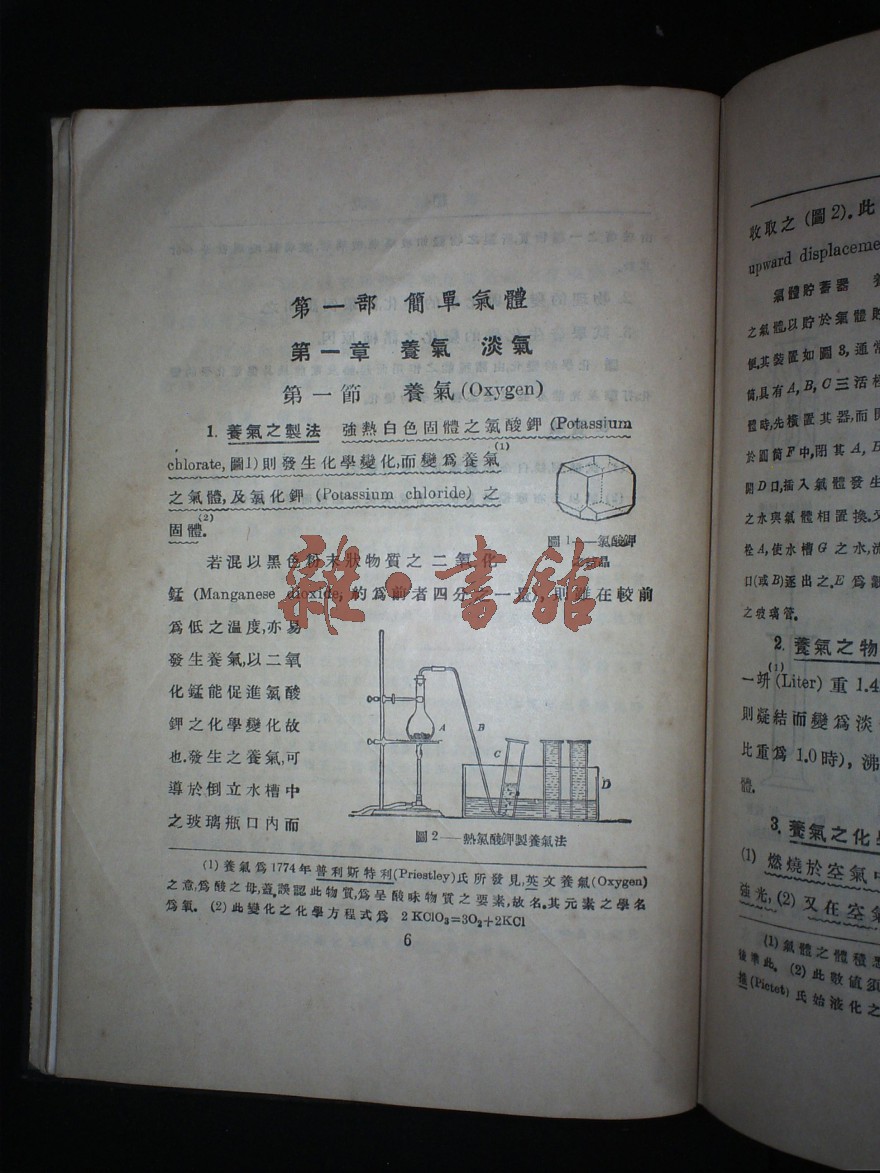 第一部 簡單氣體
第一章 養氣 淡氣
第一節 養氣(Oxygen)
1. 養氣之製法 強熱白色固體之氯酸鉀(Potassium
chlorate, 圖1)則發生化學變化,而變爲養氣(1)
之氣體,及氯化鉀 (Potassium chloride) 之
固體。(2)
圖1——氯酸鉀
之結晶
若混以黑色粉末狀物質之二氧化
錳 (Manganese dioxide, 約爲前者四分之一量), 則雖在較前
爲低之温度,亦易
發生養氣,以二氧
化錳能促進氯酸
鉀之化學變化故
也.發生之養氣,可
導於倒立水槽中
之玻璃瓶口內而
A
B
C
D
圖2——熱氯酸鉀製養氣法
(1) 養氣爲1774年普利斯特利(Priestley)氏所發見,英文養氣(Oxygen)
之意,爲酸之母,蓋誤認此物質,爲呈酸味物質之要素,故名。其元素之學名
爲氧。 (2) 此變化之化學方程式爲 2 KClO₃=3O₂+2KCl
6
雜·書館
收取之 (圖2). 此
upward displaceme
氣體貯蓄器 養
之氣體,以貯於氣體貯
便,其裝置如圖3, 通常
筒,具有A, B, C三活栓
體時,先橫置其器,而
於圓筒F中,閉其A, B
開D口,插入氣體發生
之水與氣體相置換.
栓A,使水槽G之水,流
口(或B)逐出之. E爲
之玻璃管。
2. 養氣之物
一竔(1)(Liter) 重 1.4
則凝結而變爲淡
比重爲 1.0時), 沸
體.
3. 養氣之化學
(1) 燃燒於空氣中
強光, (2) 又在空氣
(1) 氣體之體積
後準此。 (2) 此數值須
(Pictet) 氏始液化之